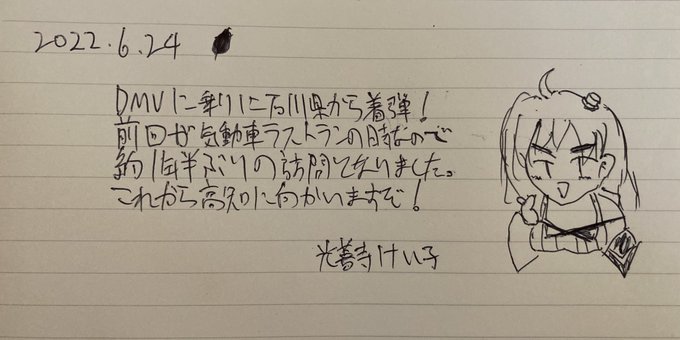 2022.6.24
DMVに乗りに石川県から着弾！
前回が気動車ラストランの時なので
約1年半ぶりの訪問となりました。
これから高知に向かいますぞ！
光善寺けい子